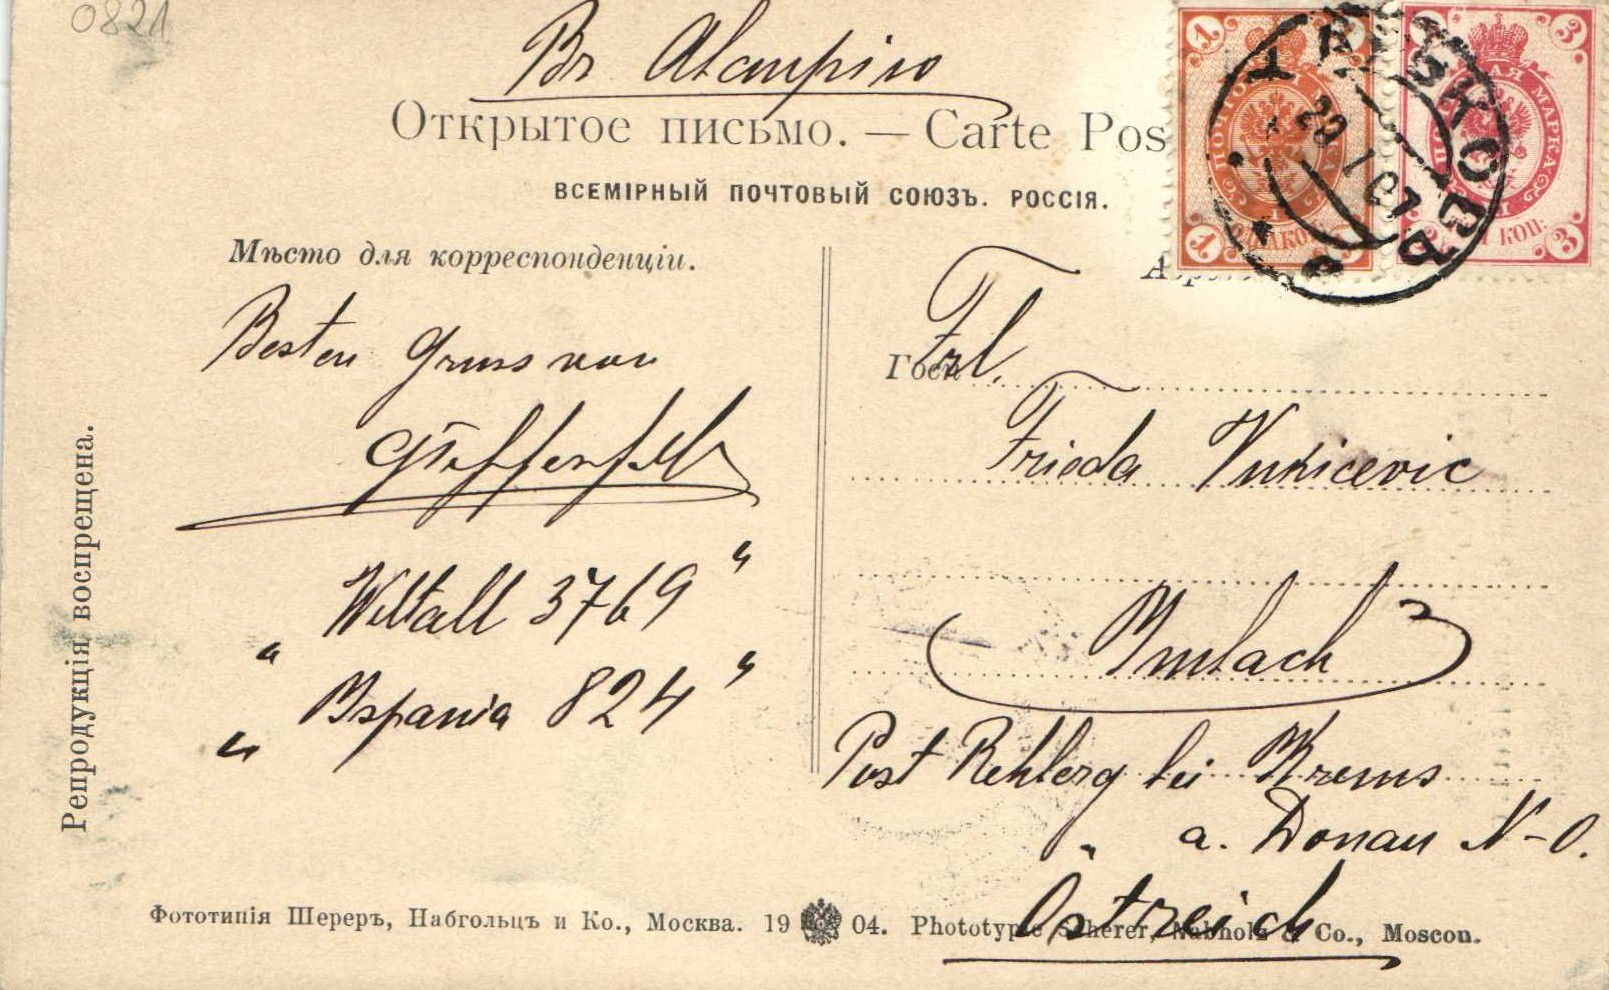 0821
Открытое письмо. — Carte Pos
ВСЕМІРНЫЙ ПОЧТОВЫЙ СОЮЗЪ. РОССІЯ.
Мѣсто для корреспонденціи.
Besten Gruss von
Weltall 3769"
„ Ispania 824"
Frl.
Frieda Vukicevic
Imbach
Post Rehberg bei Krems
a. Donau N-O.
Östreich
Репродукція воспрещена.
Фототипія Шереръ, Набгольцъ и Ко., Москва. 19 04. Phototypie Scherer, Nabholz & Co., Moscou.